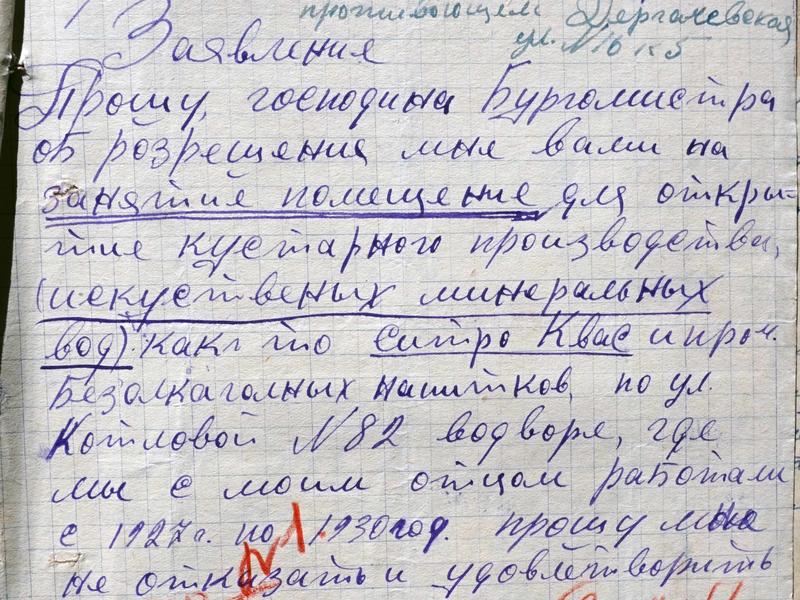 проживающем Дергачевская
ул. №16 к 5
Заявление
Прошу, господина Бургомистра
об розрещения мне вами на
занятие помещение для откры-
тие кустарного производства,
(искуственых минеральных
вод). как то ситро Квас и проч.
Безалкагольных напитков, по ул.
Котловой №82 водворе, где
мы с моим отцом работали
с 1927г. по 1930год. прошу мне
не отказать и удовлетворить
№1